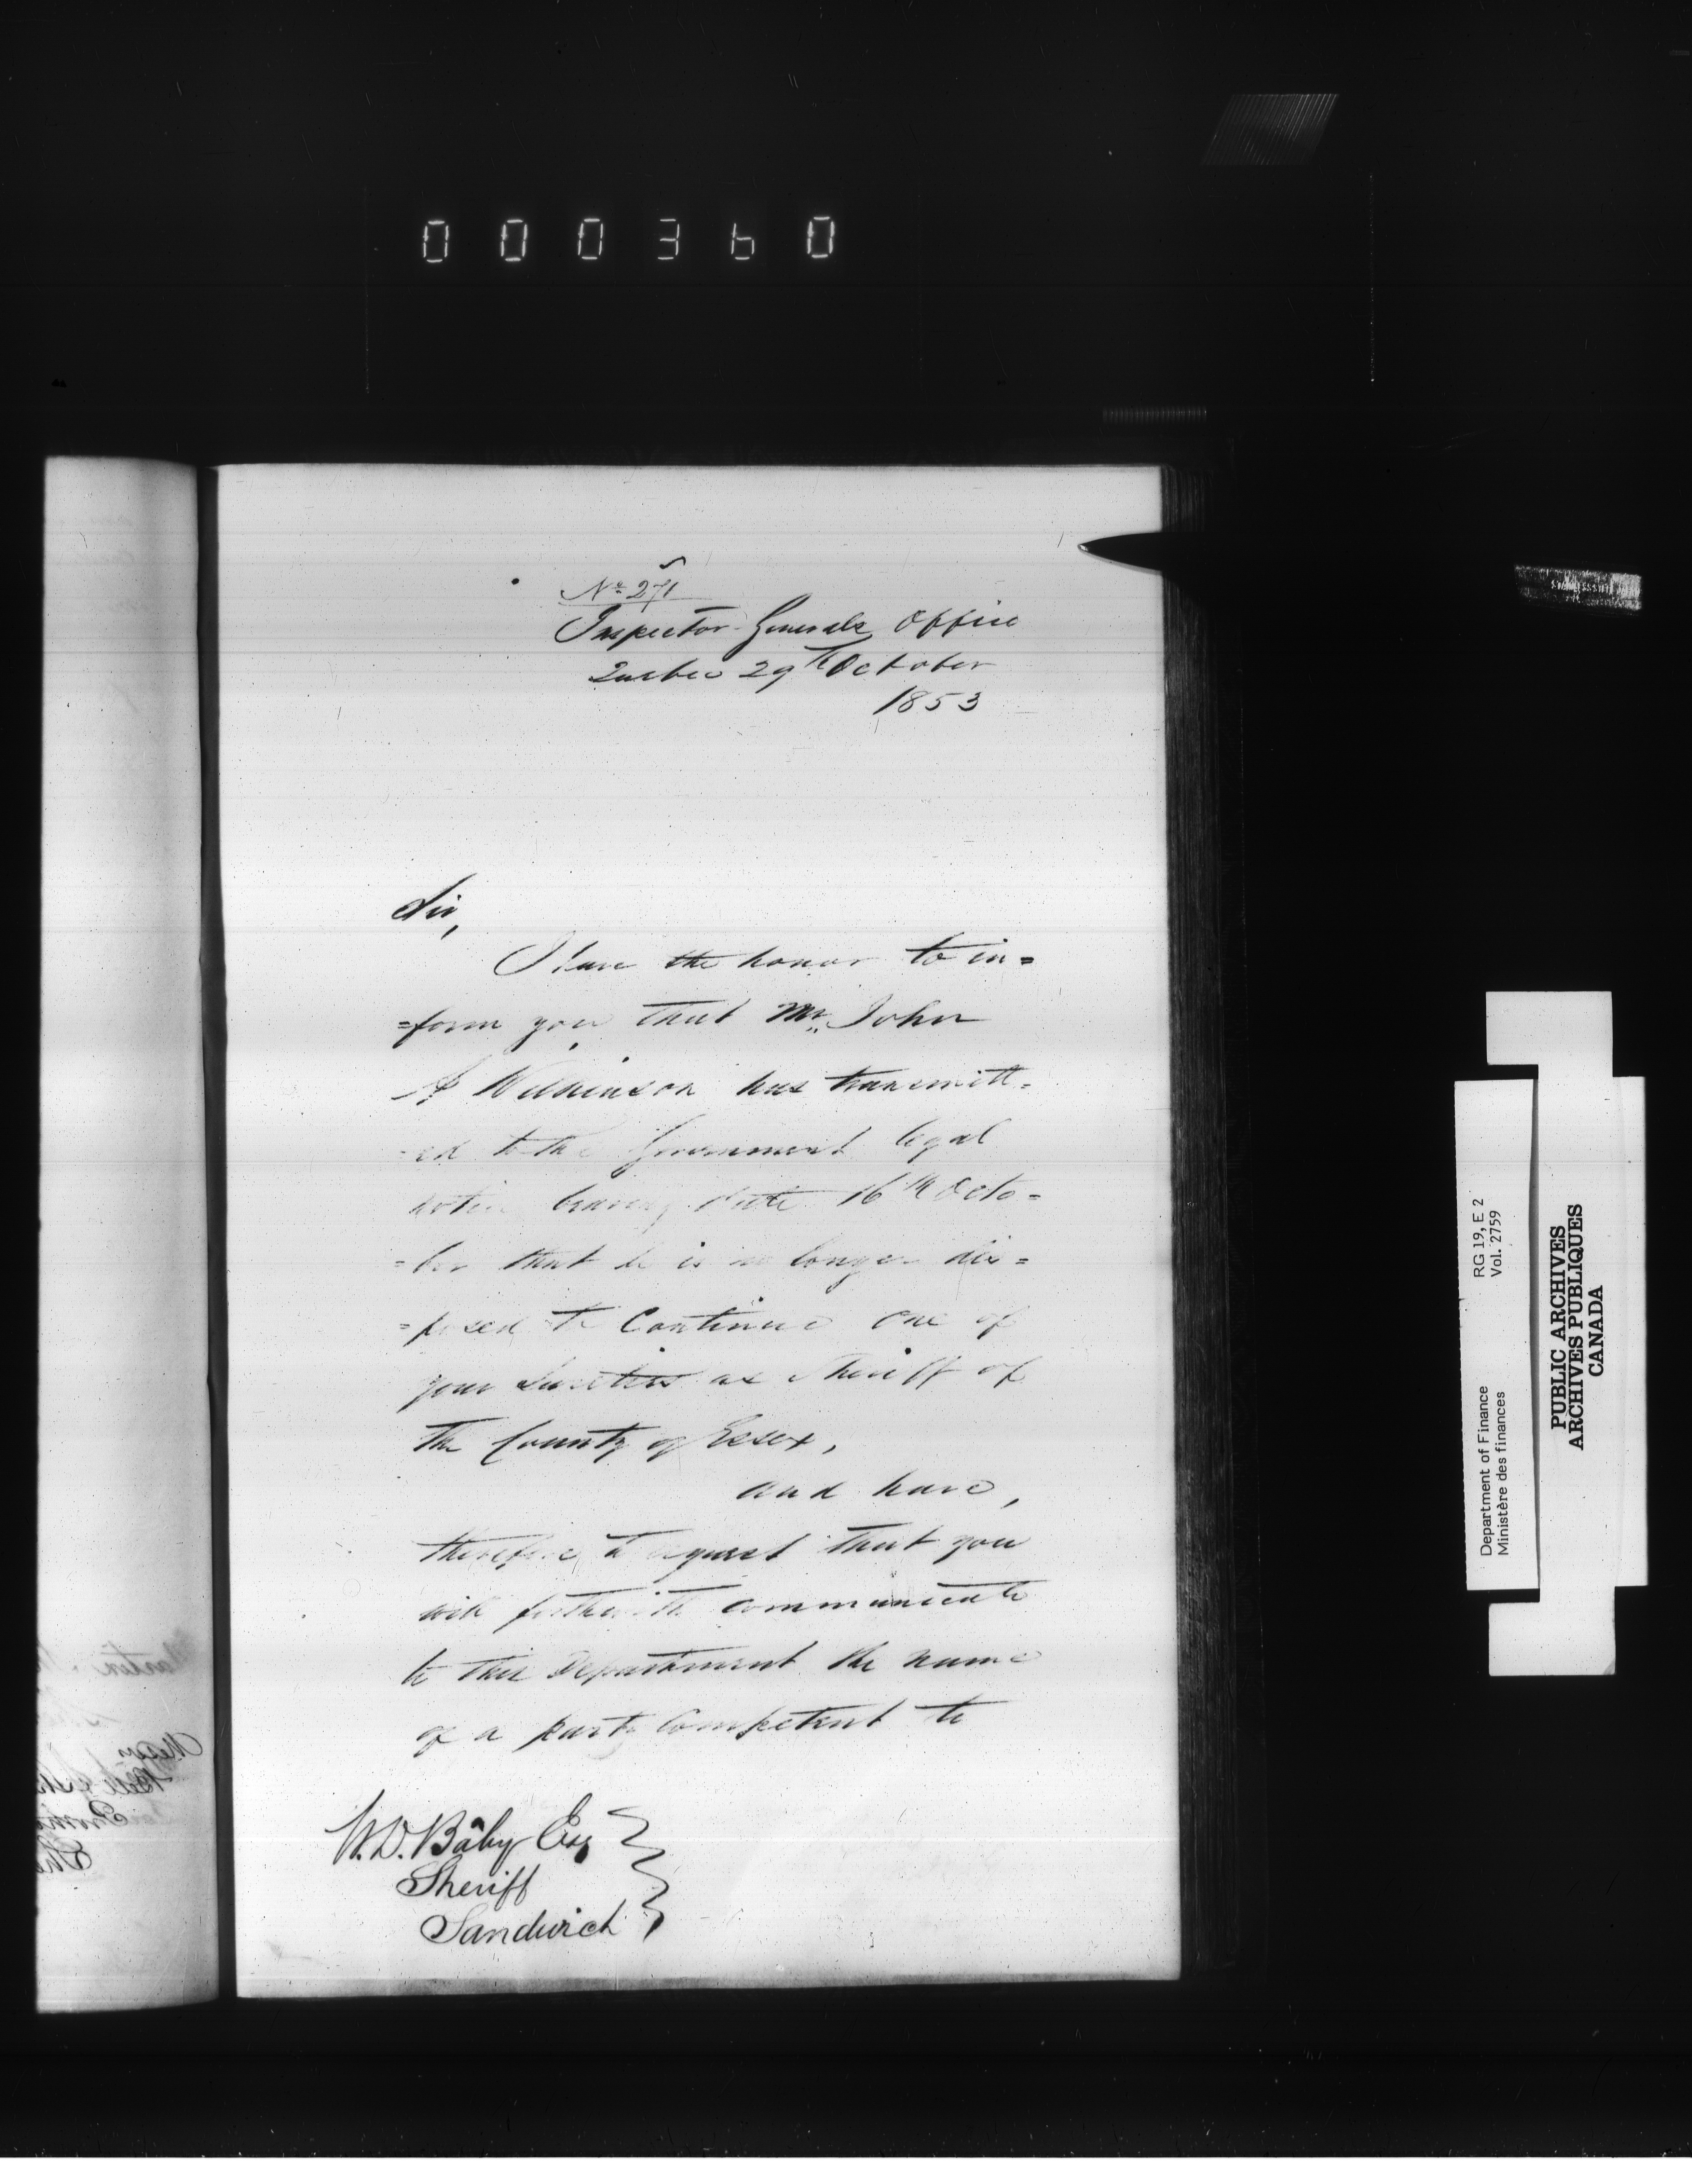 000360
No. 271
Inspector Generals Office
Quebec 29th October
1853
Sir,
I have the honor to in=
=form you that Mr. John
A Wilkinson has transmitt=
=ed to the Government legal
notice bearing date 16th Octo=
=ber that he is no longer dis=
=posed to Continue one of
your Sureties as Sheriff of
the County of Essex,
and have,
therefore to request that you
will forthwith communicate
to this Department the name
of a party Competent to
W. D. Bâby Esq
Sheriff
Sandwich
Department of Finance
Ministère des finances
RG 19, E 2
Vol. 2759
PUBLIC ARCHIVES
ARCHIVES PUBLIQUES
CANADA